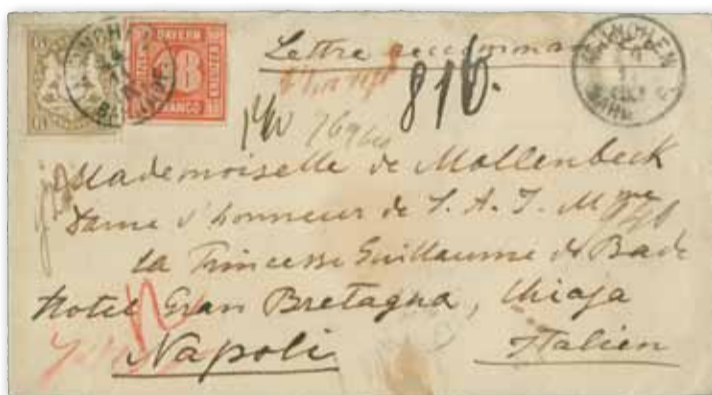 BAYERN
KREUZER 18 KREUZER
FRANCO
MÜNCHEN
BAHNHOF
Lettre recommandée
816.
Mademoiselle de Mollenbeck
Dame d'honneur de S. A. I. Mme
la Princesse Guillaume de Bade
Hotel Gran Bretagna, Chiaja
Napoli
Italien